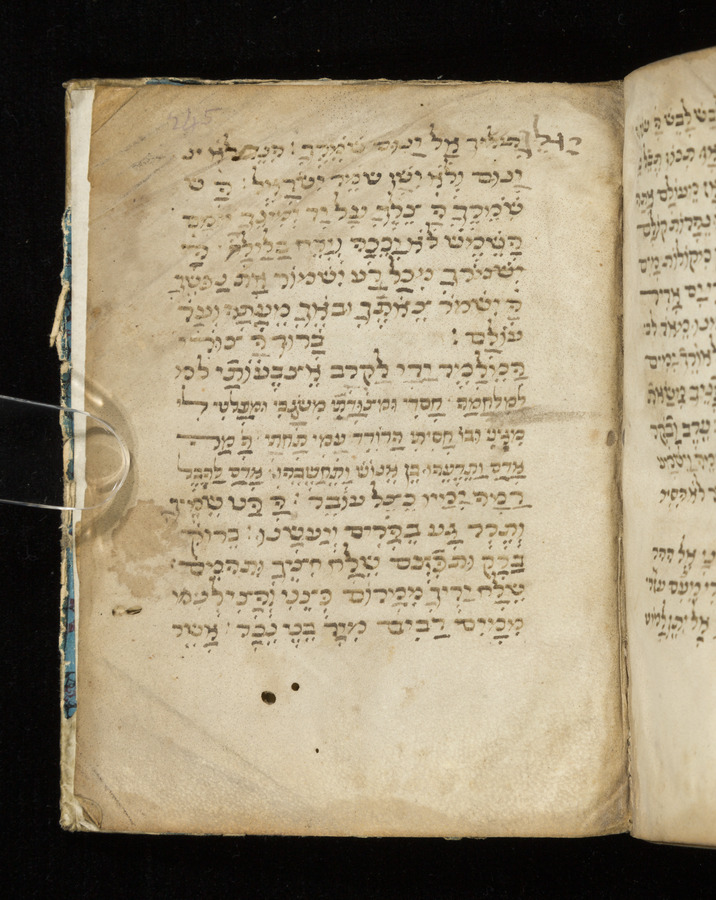 אל ינום שומרך : הנה לא ינ
ינום ולא ישן שומר ישראל : ה ש
שומרך ה צלך על יד ימינך יומם
השמש לא יככה וירח בלילה
ישמרך מכל רע ישמור את נפשך
ה ישמור צאתך ובאך מעתה ועד
עולם : ברוך ה צורי
המלמד ידי לקרב אצבעותי למ
למלחמה חסדי ומצודתי משגבי ומפלטי לי
מגיני ובו חסיתי הרודד עמי תחתי ה מה
אדם ותדעהו בן אנוש ותחשבהו אדם להבל
דמה ימיו כצל עובר : ה הט שמיך
ותרד גע בהרים ויעשנו : ברוק
ברק ותפיצם שלח חציך ותהמם :
שלח ידיך ממרום פצני והצילני
ממים רבים מיד בני נכר אשר